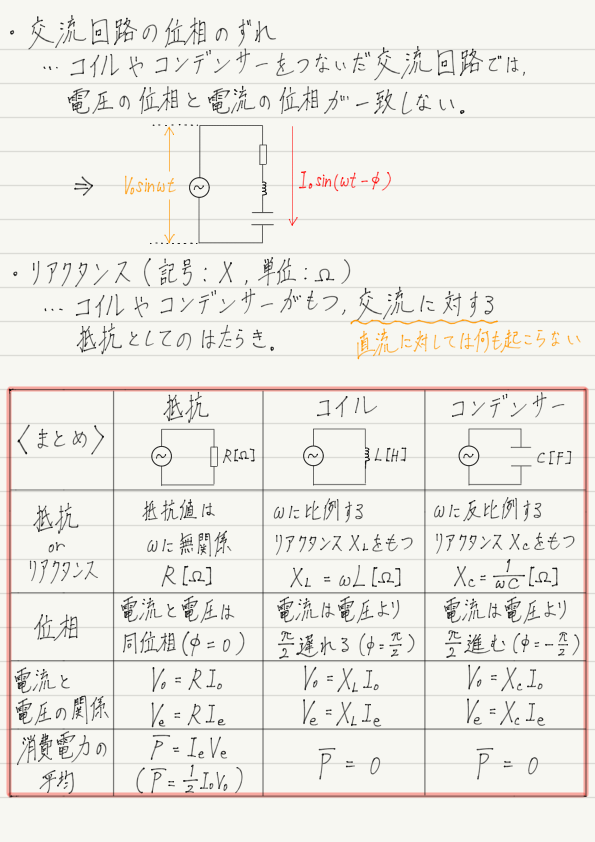 ・交流回路の位相のずれ
…コイルやコンデンサーをつないだ交流回路では,
電圧の位相と電流の位相が一致しない。
⇒ V₀sinωt I₀sin(ωt-φ)
・リアクタンス(記号:X,単位:Ω)
…コイルやコンデンサーがもつ,交流に対する
抵抗としてのはたらき。
直流に対しては何も起こらない
〈まとめ〉
抵抗
R[Ω]
コイル
L[H]
コンデンサー
C[F]
抵抗
or
リアクタンス
抵抗値は
ωに無関係
R[Ω]
ωに比例する
リアクタンスX_Lをもつ
X_L = ωL[Ω]
ωに反比例する
リアクタンスX_Cをもつ
X_C = 1/ωC [Ω]
位相
電流と電圧は
同位相(φ=0)
電流は電圧より
π/2遅れる(φ=π/2)
電流は電圧より
π/2進む(φ=-π/2)
電流と
電圧の関係
V₀ = RI₀
Ve = RIe
V₀ = X_L I₀
Ve = X_L Ie
V₀ = X_C I₀
Ve = X_C Ie
消費電力の
平均
P̅ = IeVe
(P̅ = 1/2 I₀V₀)
P̅ = 0
P̅ = 0